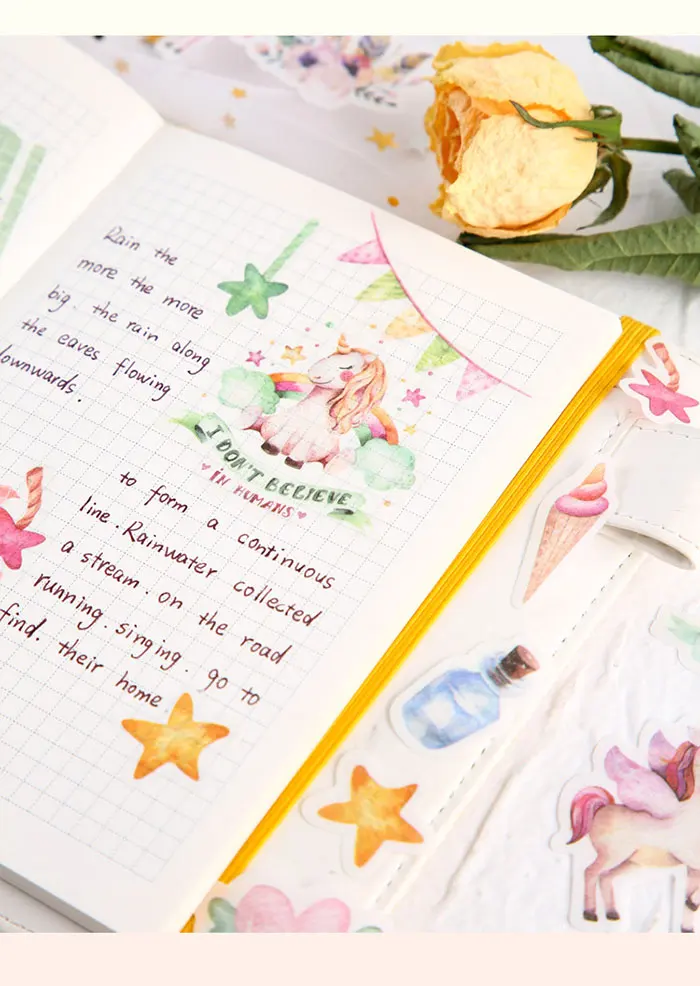 Rain the
more the more
big. the rain along
the eaves flowing
downwards.
I DON'T BELIEVE
IN HUMANS
to form a continuous
line. Rainwater collected
a stream. on the road
running. singing. go to
find. their home